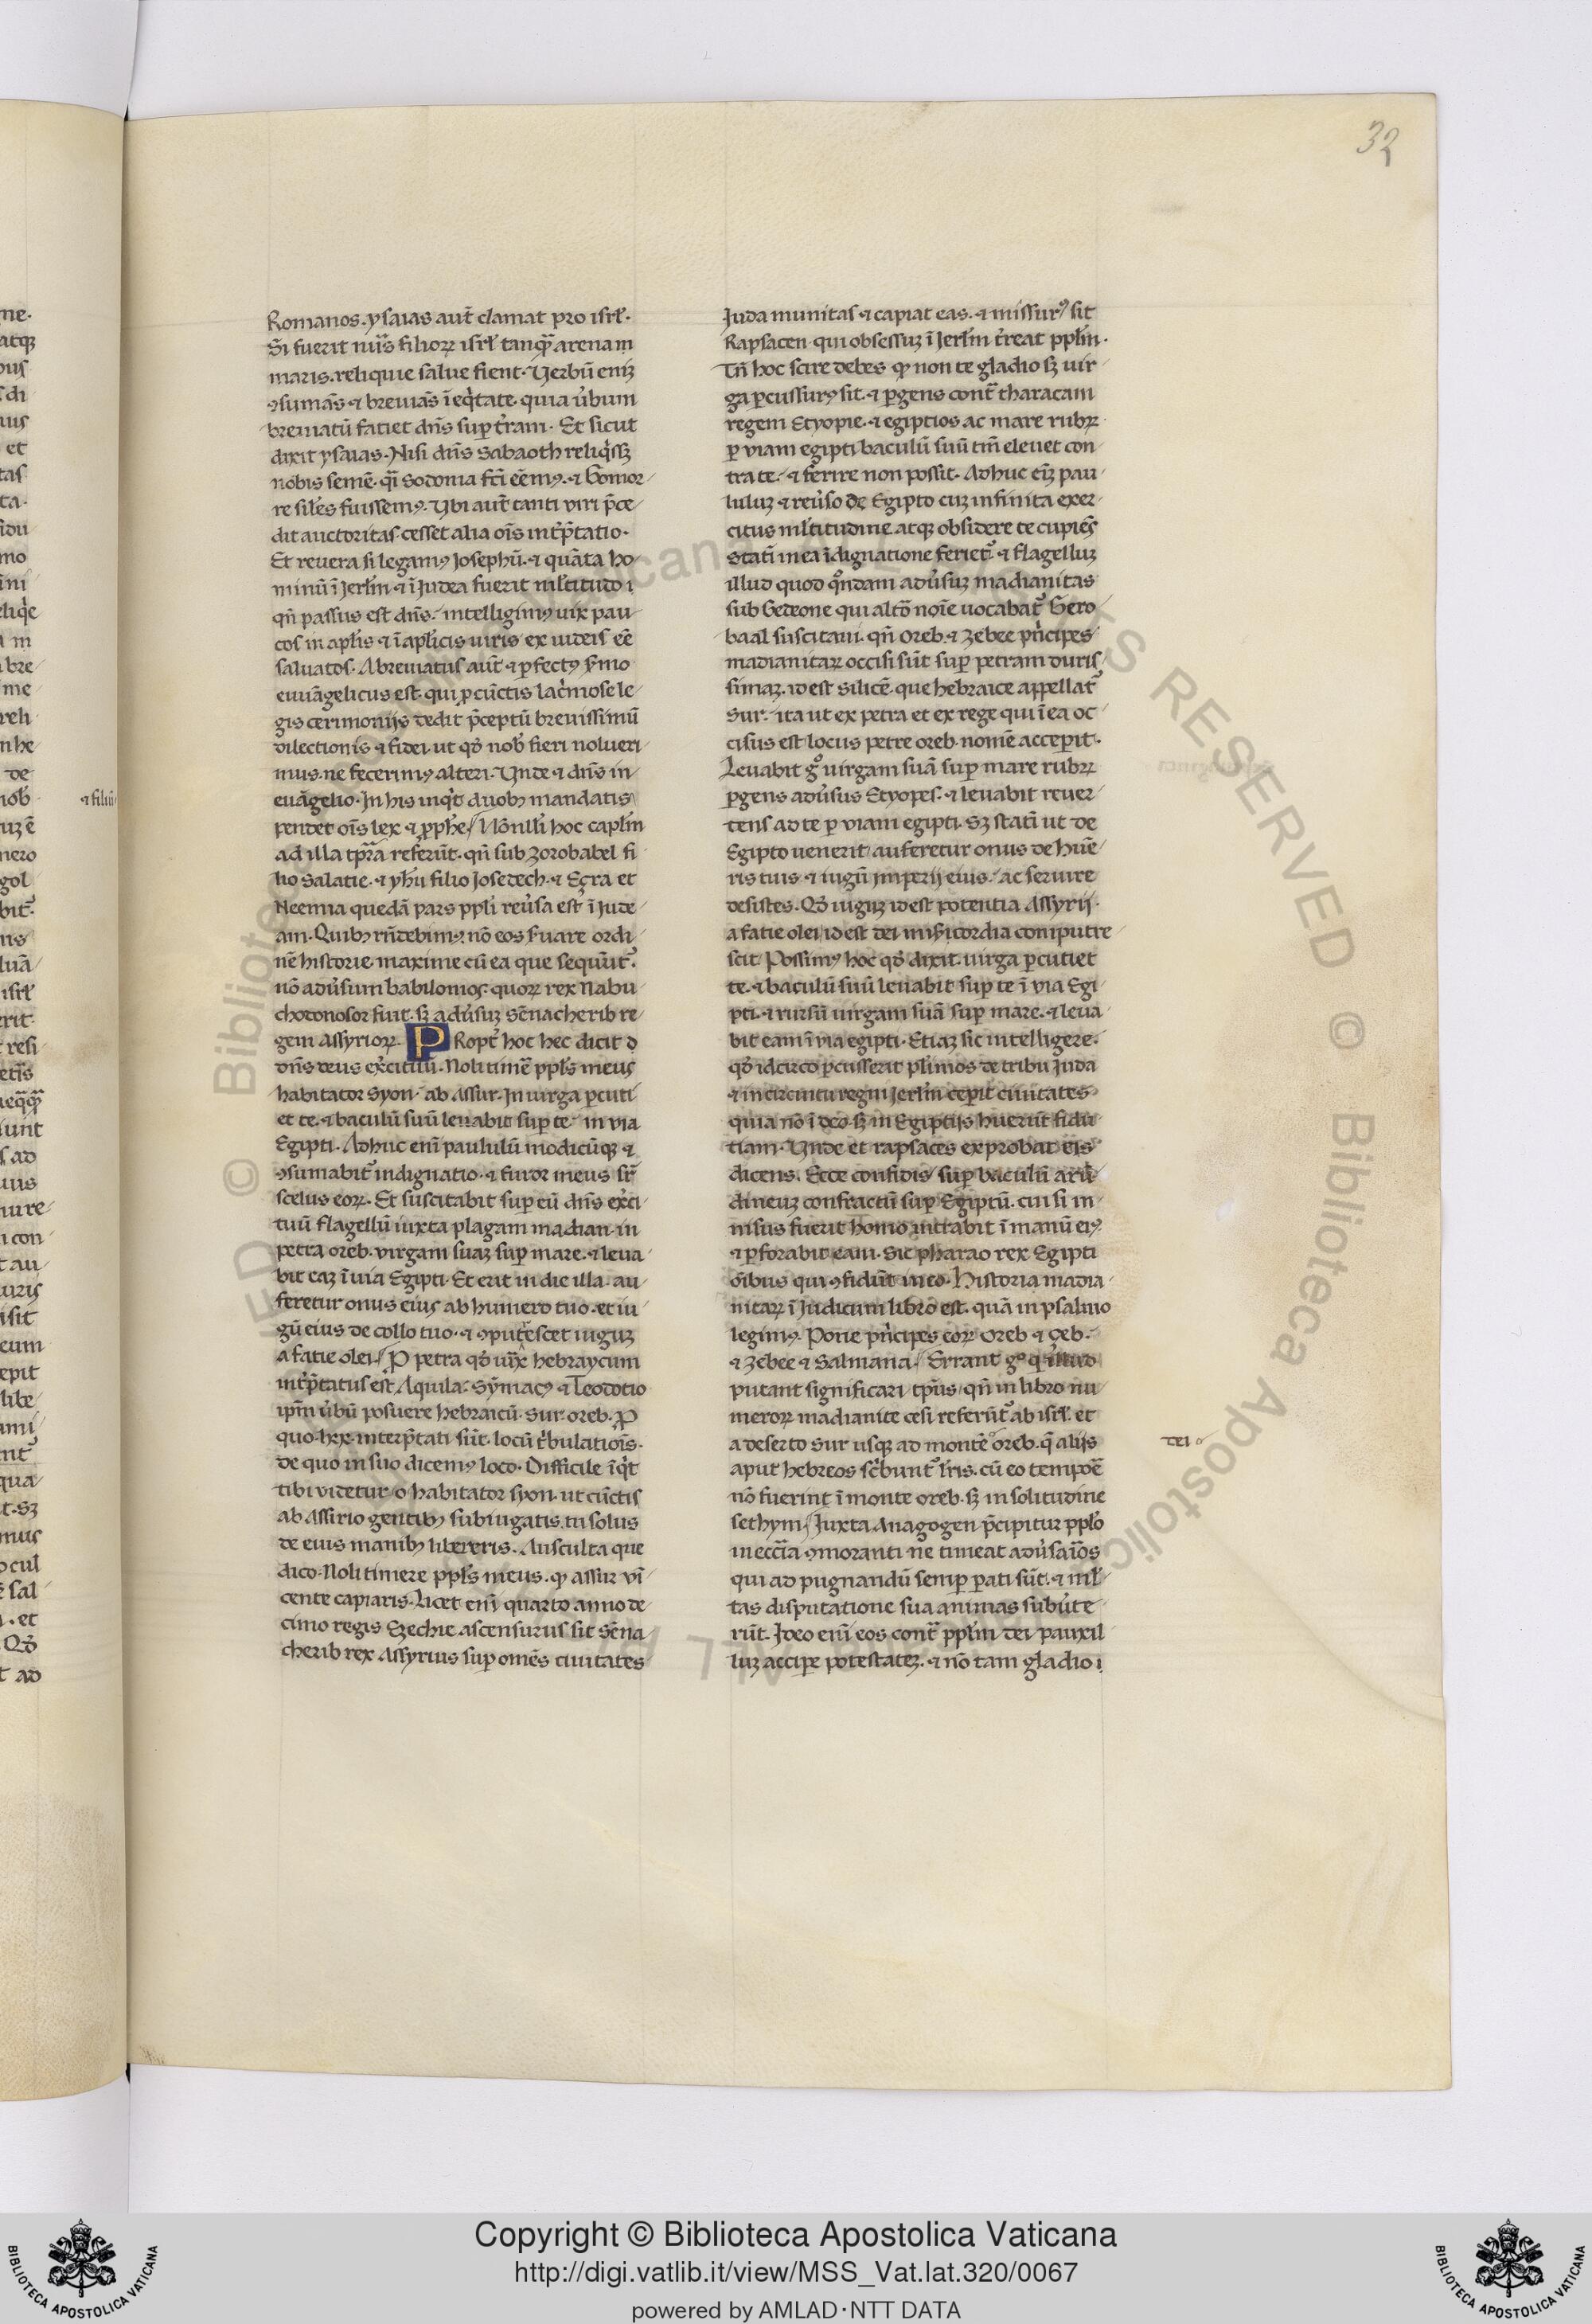 32
Romanos. ysaias aut̄ clamat pro isrł.
Si fuerit nūs filioꝝ isrł tanqᷓ arenam
maris. reliquie salue fient. Verbū eniꝫ
ꝯsumās ⁊ breuiās ī eqͥtate. quia ūbum
breuiatū faciet dn̄s suꝑ t̄ram. Et sicut
dixit ysaias. Nisi dn̄s sabaoth reliqͥssꝫ
nobis semē. qͣi Sodoma fcī eēmꝰ. ⁊ Gomor
re siles fuissemꝰ. Vbi aut̄ tanti viri p̄ce
dit auctoritas. cesset alia oīs int̄p̄tatio.
Et reuera si legamꝰ Josephū. ⁊ quāta ho
minū ī Jerłm ⁊ ī Judea fuerit mltitudo ı
qn̄ passus est dn̄s. intelligimꝰ uix pau
cos in apłis ⁊ ī apłicis uiris ex iudeis eē
saluatos. Abreuiatus aut̄ ⁊ ꝑfectꝰ s̄mo
euuāgelicus est. qui ꝓ cūctis lacͥmose le
gis cerimonijs dedit p̄ceptū breuissimū
dilectionis ⁊ fidei. ut qđ nob̄ fieri nolueri
mus. ne fecerimꝰ alteri. Vnde ⁊ dn̄s in
euāgelio. In his inqͥt duobꝰ mandatis
pendet oīs lex ⁊ ꝓphe. Nōnlłi hoc capłm
ad illa tp̄ra referūt. qn̄ sub Zorobabel fi
lio Salatie. ⁊ yħu filio Josedech. ⁊ Eçra et
Neemia quedā pars ppłi reūsa est ī Jude
am. Quibꝰ rn̄debimꝰ nō eos s̄uare ordi
nē historie. maxime cū ea que sequūt᷑.
nō adūsum babilonios. quoꝝ rex Nabu
chodonosor fuit. sꝫ adūsuꝫ Sēnacherib re
gem Assyrioꝝ. PRopt̄ hoc hec dicit d
dn̄s deus ex̄cituū. Noli timē ppłs meus
habitator Syon. ab Assur. In uirga ꝑcuti
et te. ⁊ baculū suū leuabit suꝑ te. in via
Egipti. Adhuc enī paululū modicūqꝫ ⁊
ꝯsumabit᷑ indignatio. ⁊ furor meus sr̄
scelus eoꝝ. Et suscitabit suꝑ eū dn̄s ex̄ci
tuū flagellū iuxta plagam madian. in
petra oreb. virgam suaꝫ suꝑ mare. ⁊ leua
bit eaꝫ ī uia Egipti. Et erit in die illa. au
feretur onus eius ab humero tuo. et iu
gū eius de collo tuo. ⁊ ꝯput̄escet iuguꝫ
a facie olei. P petra qđ iux̄ hebraycum
int̄p̄tatus est. Aquila. Sȳmacꝰ ⁊ Teodotio
ipm̄ ūbū posuere hebraicū. Sur oreb. P
quo. lxx. interp̄tati sūt. locū tͥbulatiōis.
de quo in suo dicemꝰ loco. Difficile īqͥt
tibi videtur o habitator syon. ut cūctis
ab Assirio gentibꝰ subiugatis. tu solus
de eius manibꝰ libereris. Ausculta que
dico. Noli timere ppłs meus. qꝫ assur vī
cente capiaris. Licet enī quarto anno de
cimo regis Ezechie ascensurus sit Sēna
cherib rex Assyrius suꝑ omēs ciuitates
Juda munitas ⁊ capiat eas. ⁊ missurꝰ sit
Rapsacen. qui obsessuꝫ ī Jerłm t̄reat ppłm.
Tn̄ hoc scire debes qꝫ non te gladio sꝫ uir
ga ꝑcussurꝰ sit. ⁊ ꝑgens cont̄ tharacam
regem Etyopie. ⁊ egiptios ac mare rubꝝ
ꝑ viam egipti baculū suū tm̄ eleuet con
tra te. ⁊ ferire non possit. Adhuc eīꝫ pau
luluꝫ ⁊ reūso de Egipto cuꝫ infinita exer
citus mltitudine. atqꝫ obsidere te cupiēs
Statī mea īdignatione feriet᷑. ⁊ flagelluꝫ
illud quod qͦndam adūsuꝫ madianitas
sub Gedeone qui altō noīe uocabat᷑ Gero
baal suscitaui. qn̄ oreb. ⁊ Zebee pn̄cipes
madianitaꝝ occisi sūt suꝑ petram duris
simaꝫ. id est silicē. que hebraice appellat᷑
Sur. ita ut ex petra et ex rege qui ī ea oc
cisus est locus petre oreb. nomē acceperit.
Leuabit gͦ uirgam suā suꝑ mare rubꝝ
ꝑgens adūsus Etyopes. ⁊ leuabit reuer
tens ad te ꝑ viam egipti. Sꝫ statī ut de
Egipto uenerit auferetur onus de hūe
ris tuis ⁊ iugū imperij eius. ac seruire
desistes. Qđ iuguꝫ id est potentia Assyrij.
a facie olei id est dei miẛicordia computre
scit. Possimꝰ hoc qđ dixit. uirga ꝑcutiet
te. ⁊ baculū suū leuabit suꝑ te ī via Egi
pti. ⁊ rursū uirgam suā suꝑ mare. ⁊ leua
bit eam ī via egipti. Etiaꝫ sic intelligere.
qđ idcirco ꝑcusserit plīmos de tribu Juda
⁊ in circuitu regni Jerłm cepit ciuitates
quia nō ī deo. sꝫ in Egiptijs huerūt fidu
tiam. Vnde et rapsaces exprobat eis
dicens. Ecce confidis suꝑ baculū arū
dineuꝫ confractū suꝑ Egiptū. cui si in
nisus fuerit homo intrabit ī manū eiꝰ
⁊ ꝑforabit eam. Sic pharao rex Egipti
oībus qui ꝯfidūt in eo. Historia madia
nitaꝝ ī Judicum libro est. quā in psalmo
legimꝰ. Pone pn̄cipes eoꝝ Oreb ⁊ çeb.
⁊ Zebee ⁊ Salmana. Errant gͦ qͥ illud
putant significari tp̄us qn̄ in libro nu
meroꝝ madianite cesi referūt᷑ ab isrł. et
a deserto Sur usqꝫ ad montē oreb. qͥ alijs
dei
aput hebreos sc̄bunt᷑ lr̄is. cū eo tempoē
nō fuerint ī monte oreb. sꝫ in solitudine
sethym. Juxta Anagogen p̄cipitur ppło
in eccīa ꝯmoranti ne timeat adūsaīos
qui ad pugnandū semꝑ ꝑati sūt. ⁊ ml̄
tas disputatione sua animas subūte
rūt. Ideo enī eos cont̄ ppłm dei pauxil
luꝫ acciꝑe potestateꝫ. ⁊ nō tam gladio ı
⁊ filiū
Copyright © Biblioteca Apostolica Vaticana
http://digi.vatlib.it/view/MSS_Vat.lat.320/0067
powered by AMLAD·NTT DATA
BIBLIOTECA APOSTOLICA VATICANA
BIBLIOTECA APOSTOLICA VATICANA